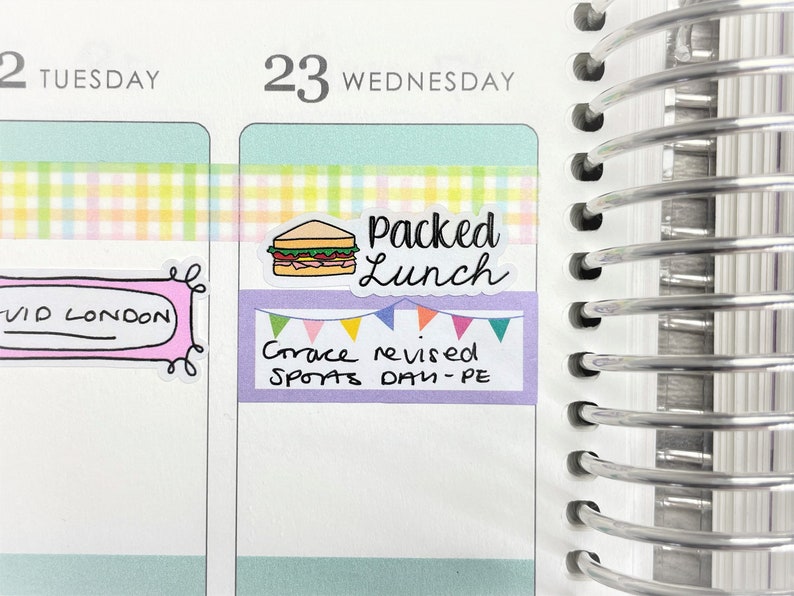 2 TUESDAY
23 WEDNESDAY
Packed
Lunch
VID LONDON
Grace revised
SPORTS DAY-PE